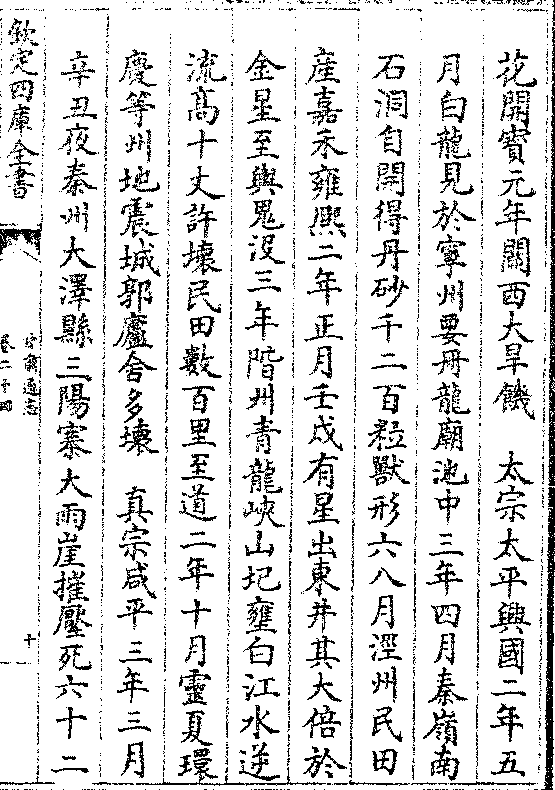 花開寳元年關西大旱饑　太宗太平興國二年五
月白龍見於寧州要冊龍廟池中三年四月秦嶺南
石洞自開得丹砂千二百粒獸形六八月涇州民田
産嘉禾雍熙二年正月壬戌有星出東井其大倍於
金星至輿鬼没三年階州青龍峽山圮壅白江水逆
流髙十丈許壞民田數百里至道二年十月靈夏環
慶等州地震城郭廬舍多壊　真宗咸平三年三月
辛丑夜秦州大澤縣三陽寨大雨崖摧壓死六十二
欽定四庫全書
甘肅通志
卷二十四
十